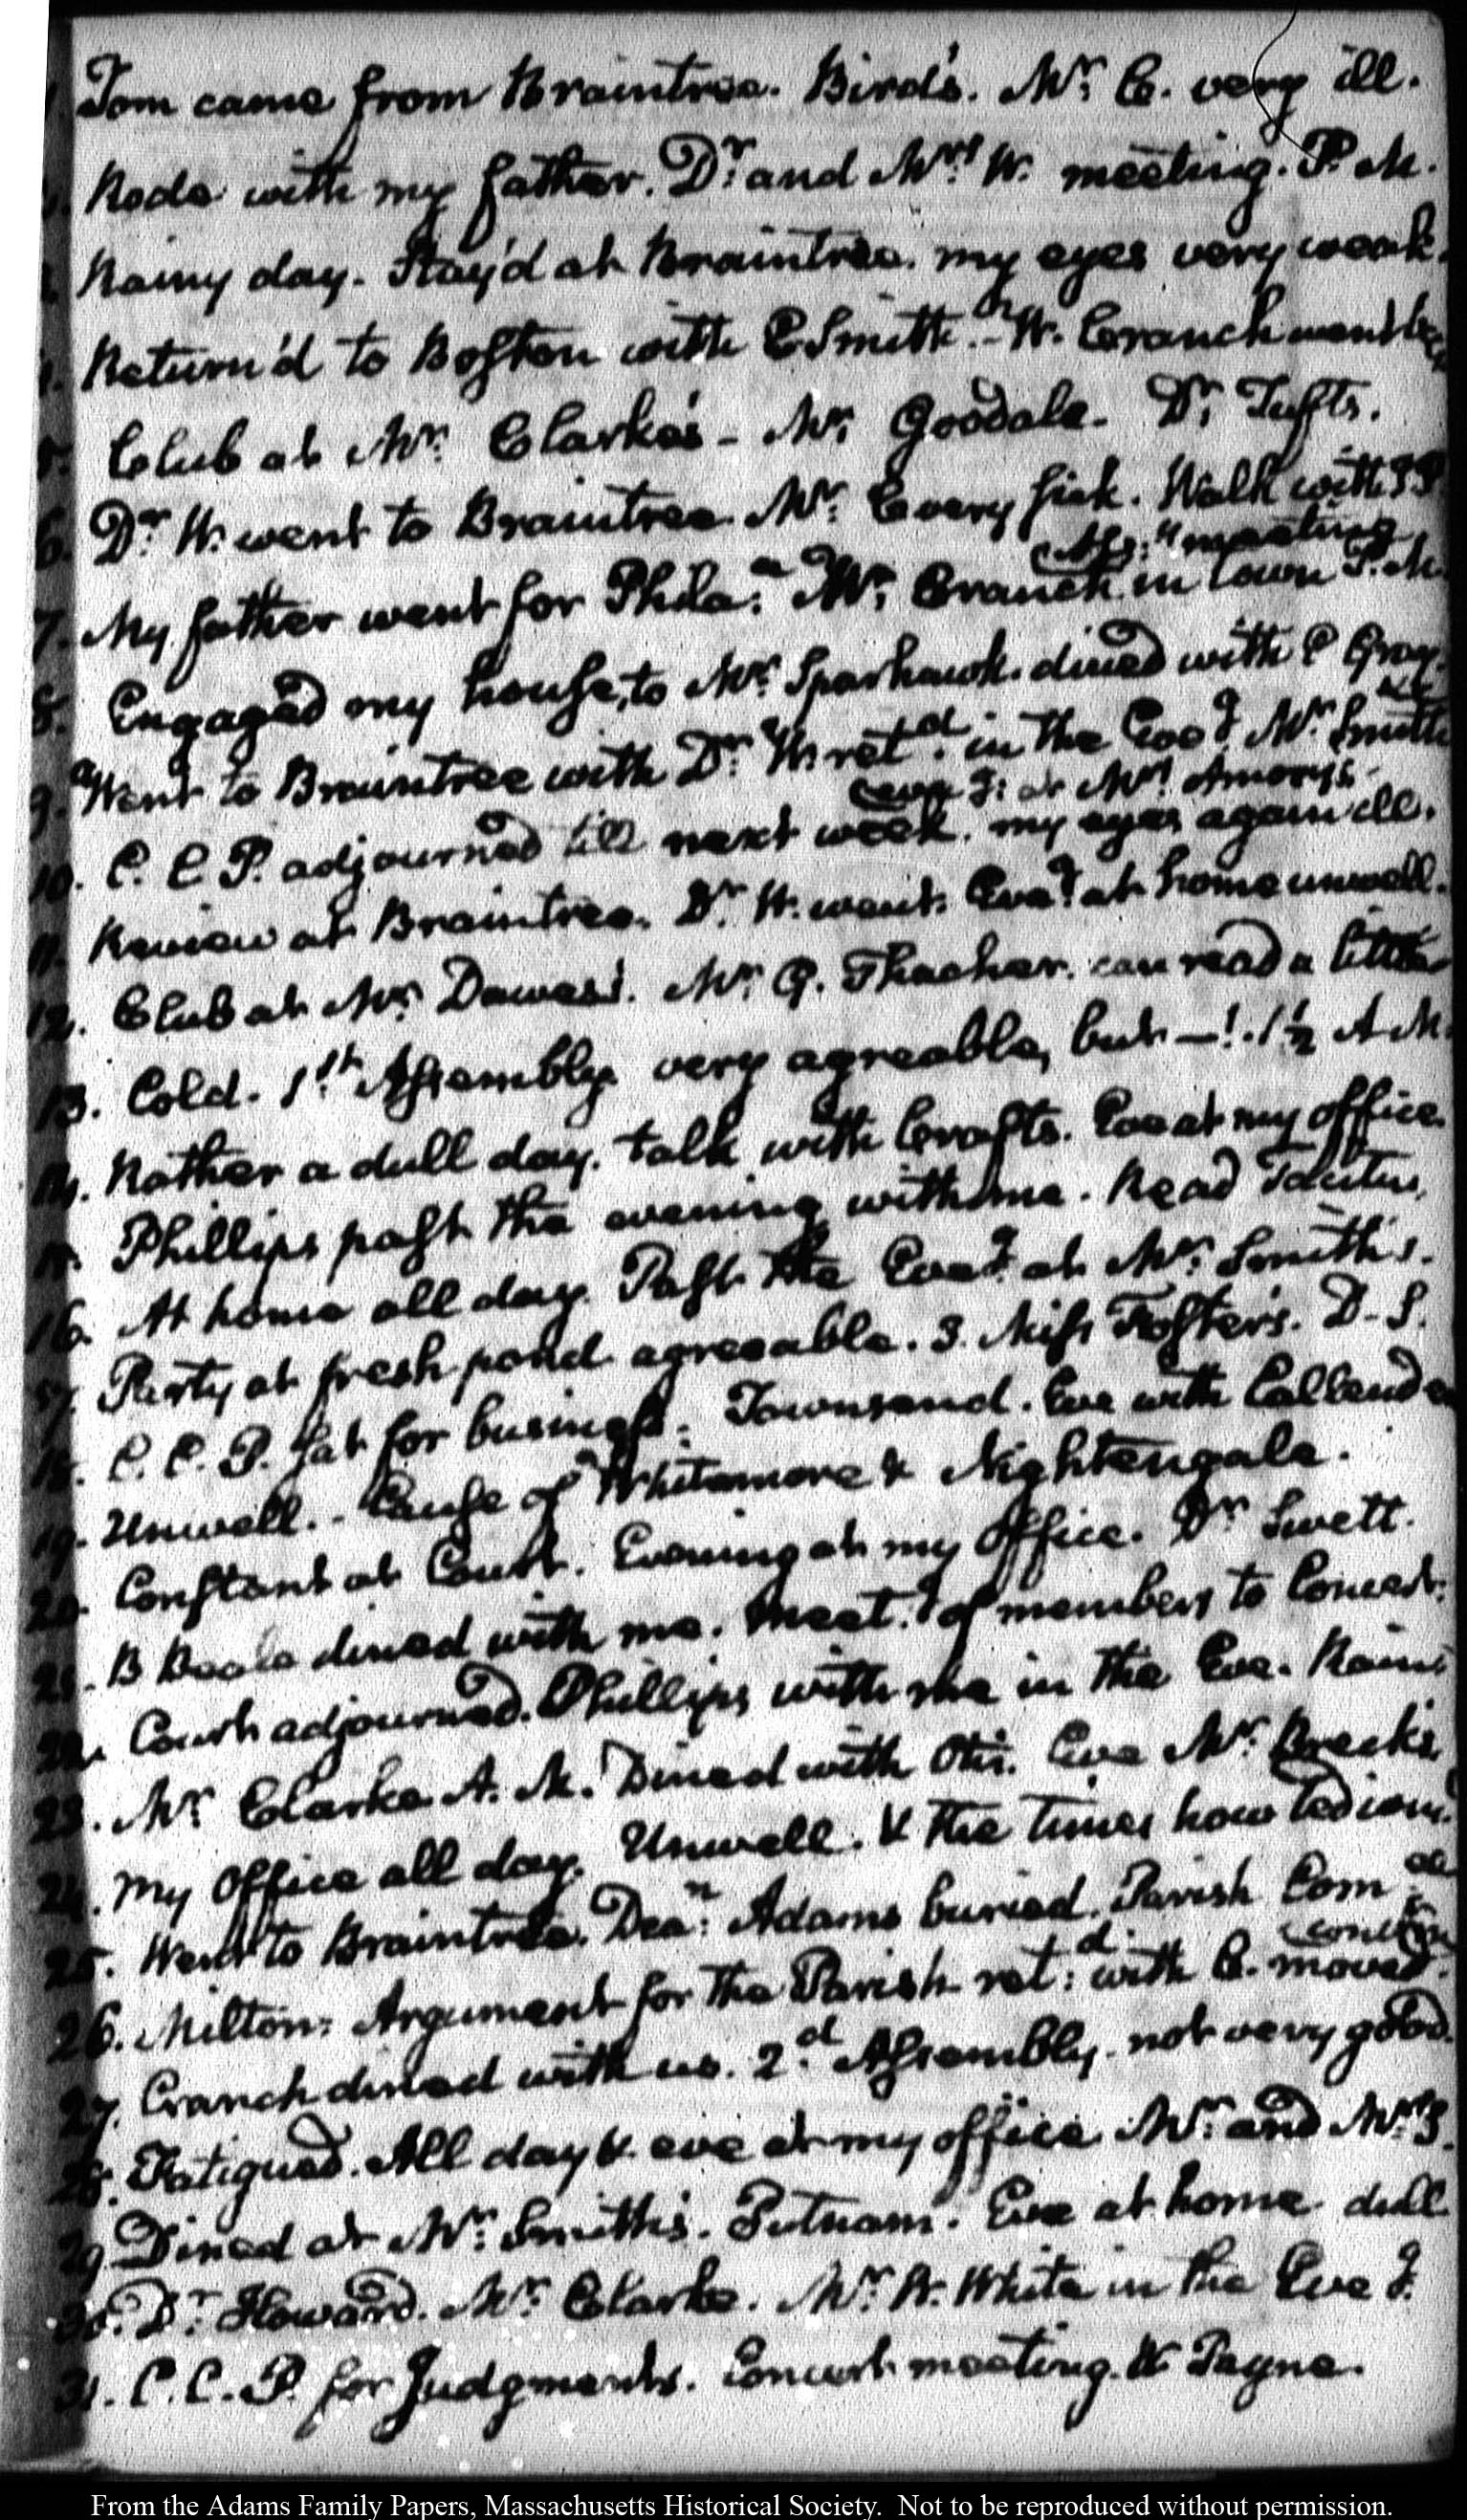 Tom came from Braintree. Bird's. Mr. C. very ill.
Rode with my father. Dr. and Mrs. W. meeting. P.M.
Rainy day. Stay'd at Braintree. my eyes very weak.
Return'd to Boston with C Smith. W. Cranch went
5. Club at Mr. Clarke's - Mr. Goodale. Dr. Tufts.
6. Dr. W. went to Braintree. Mr. C very sick. Walk with
meeting
7. My father went for Phila:a Mr. Cranch in town P.M.
8. Engaged my house, to Mr. Sparhawk. dined with C Gray.
9. Went to Braintree with Dr. W. ret:d in the Eveg. Mr. Smith
eveg: at Mrs. Amory's
10. C. C. P. adjourned till next week. my eyes again ill.
11. Review at Braintree. Dr. W. went. Eveg. at home unwell.
12. Club at Mr. Dawes's. Mr. G. Thacher. can read a little
13. Cold. 1st Assembly. very agreable, but —! . 1½ A M.
14. Rather a dull day. talk with Crafts. Eve at my office.
15. Phillips past the evening with me. Read Tacitus.
16. At home all day. Past the Eveg. at Mr. Smith's.
17. Party at fresh pond. agreeable. 3. Miss Foster's. D. S.
18. C. C. P. sat for business. Townsend. Eve with Callender
19. Unwell. - Cause of Whitamore & Nightengale.
20. Constant at Court. Evening at my Office. Dr Swett.
21. B Beale dined with me. Meetg. of members to Concert.
22. Court adjourned. Phillips with me in the Eve. Rain.
23. Mr. Clarke A. M. Dined with Otis. Eve Mr. Breck's
24. My Office all day. Unwell. & the times how tedious.
25. Went to Braintree. Dea:n Adams buried. Parish Com:ee
26. Milton. Argument for the Parish ret:d with C. moved.
27. Cranch dined with us. 2.d Assembly. not very good.
28. Fatigued. All day & eve at my office Mr. and Mrs. S.
29. Dined at Mr. Smith's. Putnam. Eve at home dull.
30. Dr. Howard. Mr. Clarke. Mr. W. White in the Eveg.
31. C. C. P. for Judgments. Concert meeting. W Payne.
From the Adams Family Papers, Massachusetts Historical Society. Not to be reproduced without permission.